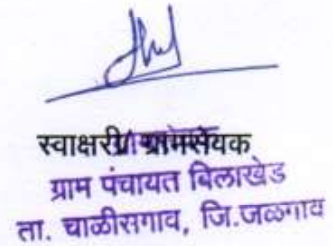 स्वाक्षरी/ ग्रामसेवक
ग्राम पंचायत बिलाखेड
ता. चाळीसगाव, जि.जळगाव